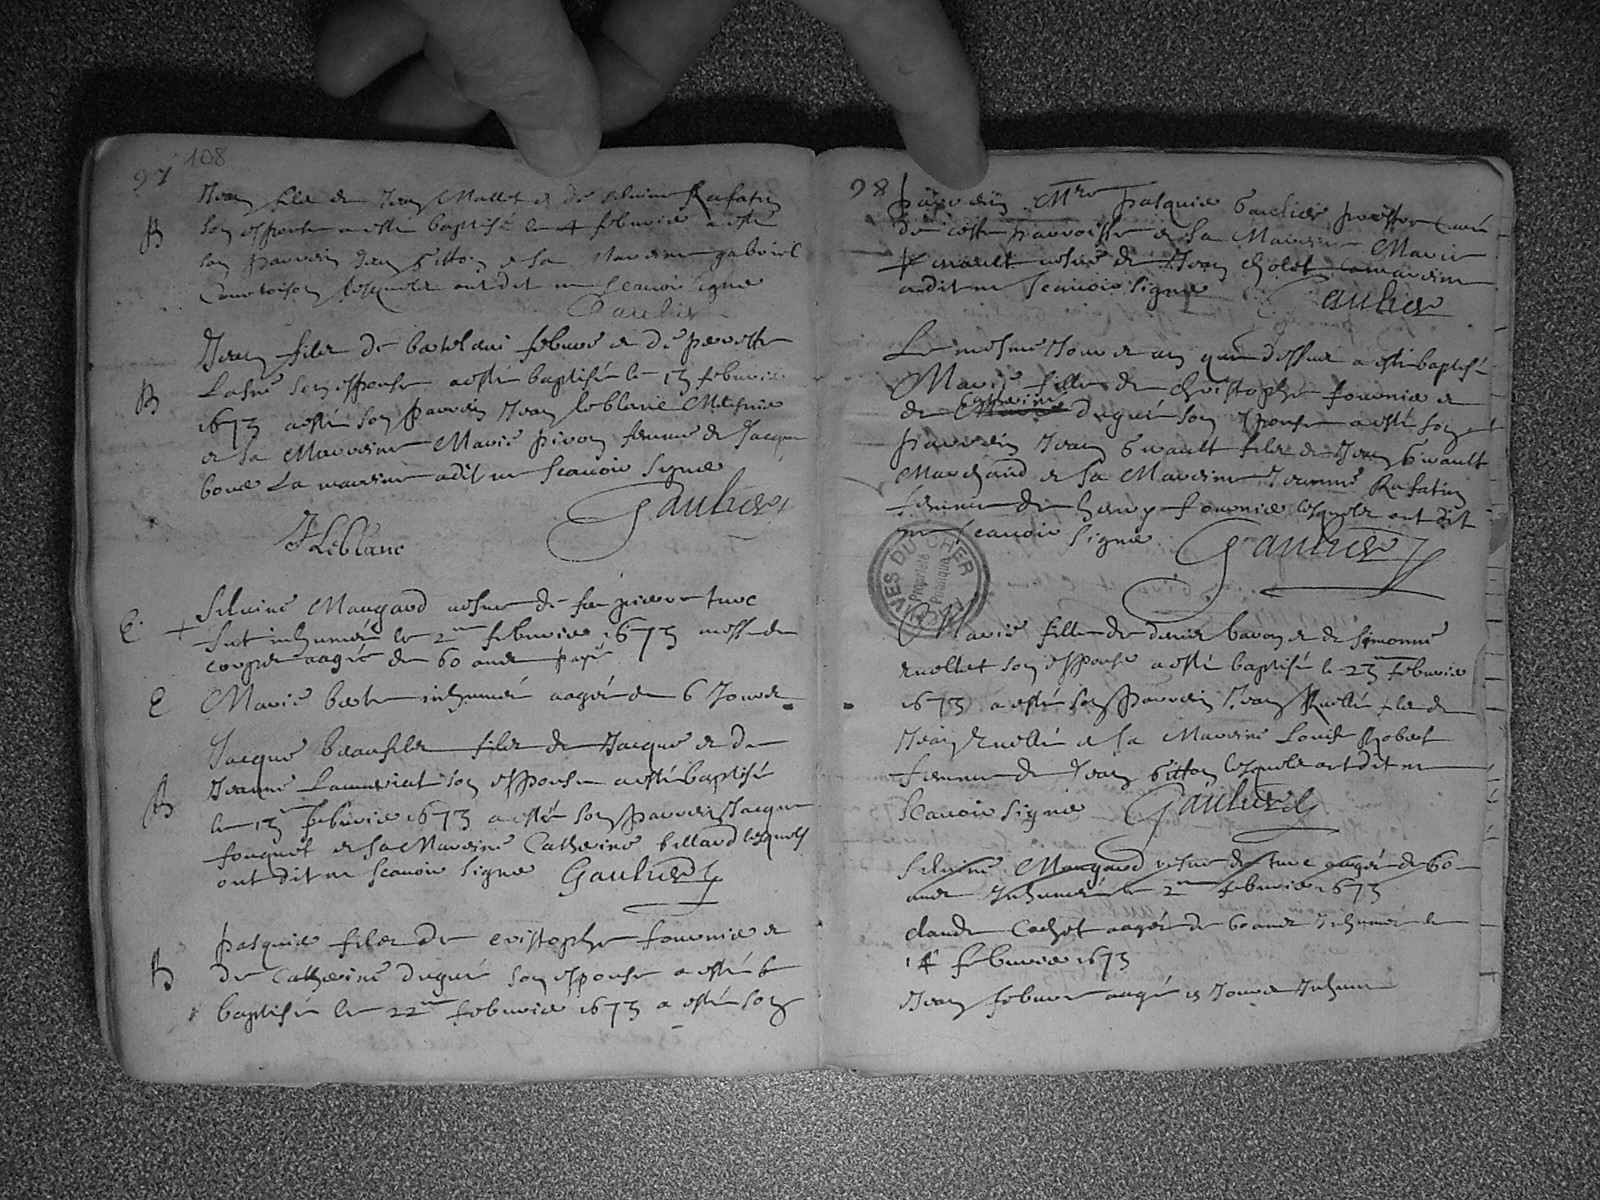 97 108
Jean filz de Jean Mallet et de silvine Rafatin
B son espouse a esté baptisé le 4 febvrier a esté
son parrain Jean Gitton et sa Marreine gabriel
Courtoison lesquels ont dit ne scavoir signe
Gaultier
Jean filz de bartelemi febure et de perette
B son espouse a esté baptisé le febvrier
1673 a esté son parrain Jean leblanc Meusnie
et sa Marreine Marie pivon femme de Jacque
boue La marreine a dit ne scavoir signe
Gaultier
J Leblanc
E + Silvine Maugard vefve de feu pierre turc
fut inhumée le 2me febvrier 1673 messe de
corps aagée de 60 ans payé
E Marie inhumée aagée de 6 Jours
Jacque beaufilz filz de Jacque et de
B Jeanne Lamoriat son espouse a esté baptisé
le febvrier 1673 a esté son parrain Jacque
fouquet et sa Marreine Catherine billard lesquels
ont dit ne scavoir signe Gaultier
pasquie filz de cristophe fournie et
B de Catherine dugué son espouse a esté b
baptisé le 22me febvrier 1673 a esté son
98 parrain Mtre pasquie Gaultier prestre Curé
de ceste parroisse et sa Marreine Marie
vefve de Jean cholet la marreine
a dit ne scavoir signe Gaultier
Le mesme Jour et an que dessus a esté baptisé
Marie fille de christophe fournie et
de catherine dugué son espouse a esté son
parrain Jean Girault filz de Jean Girault
Marchand et sa Marreine Jeanne Rafatin
femme de henry fournie lesquels ont dit
ne scavoir signe Gaultier
ARCHIVES DU CHER
Propriété
Publique
Marie fille de denis baron et de simonne
ruellet son espouse a esté baptisé le febvrie
1673 a esté son parrain Jean Ruellé filz de
Jean Ruellé et sa Marreine Louise Robert
femme de Jean Gitton lesquels ont dit ne
scavoir signe Gaultier
Silvine Maugard vefve de turc aagée de 60
ans Inhumée le 2me febvrie 1673
claude Cachet aagée de 60 ans Inhumée le
14 febvrie 1673
Jean febure aagé Jours Inhume